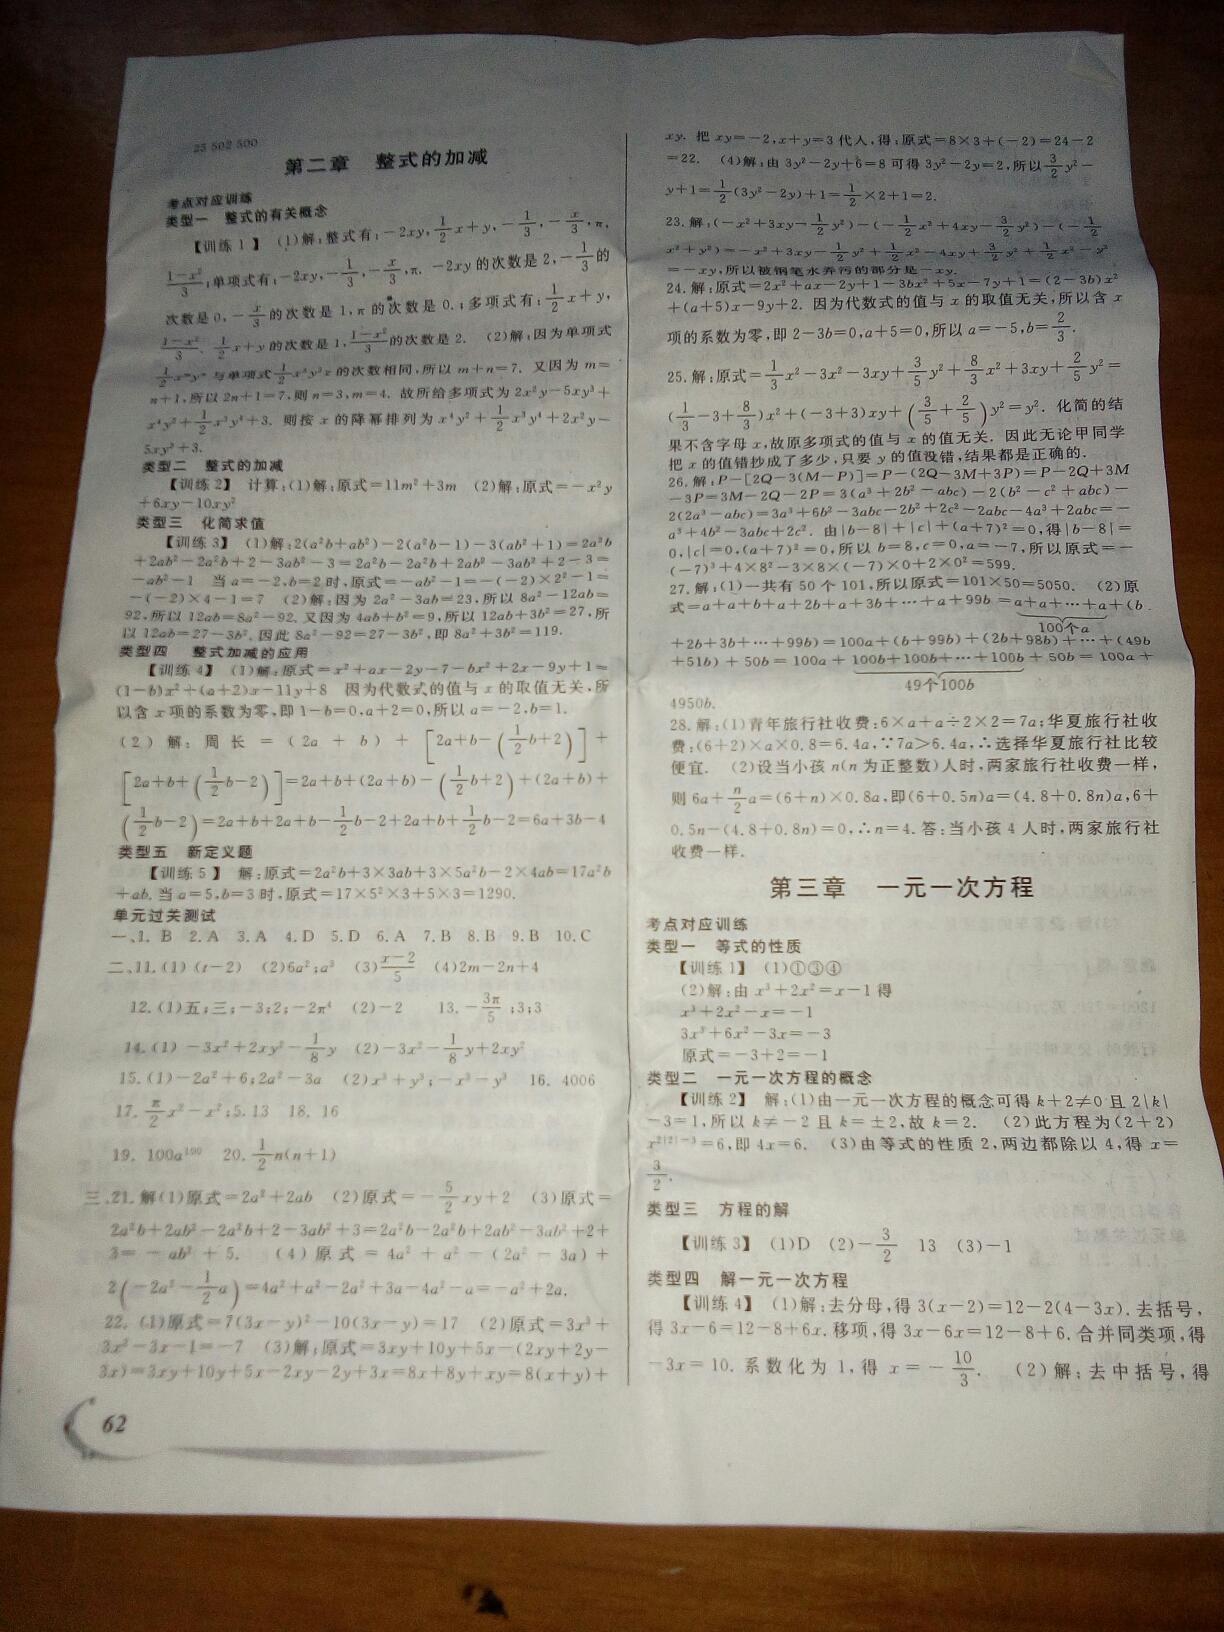 25 502 500
第二章 整式的加减
考点对应训练
类型一 整式的有关概念
【训练1】 (1)解:整式有:-2xy,1/2x+y,-1/3,-x/3,π,
(1-x²)/3;单项式有:-2xy,-1/3,-x/3,π. -2xy的次数是2,-1/3的
次数是0,-x/3的次数是1,π的次数是0.;多项式有:1/2x+y,
(1-x²)/3. 1/2x+y的次数是1,(1-x²)/3的次数是2. (2)解:因为单项式
与单项式 的次数相同,所以m+n=7. 又因为m=
n+1,所以2n+1=7,则n=3,m=4. 故所给多项式为2x²y-5xy³+
x⁴y²+1/2x³y⁴+3. 则按x的降幂排列为x⁴y²+1/2x³y⁴+2x²y-
5xy³+3.
类型二 整式的加减
【训练2】 计算:(1)解:原式=11m²+3m (2)解:原式=-x²y
+6xy-10xy²
类型三 化简求值
【训练3】 (1)解:2(a²b+ab²)-2(a²b-1)-3(ab²+1)=2a²b
+2ab²-2a²b+2-3ab²-3=2a²b-2a²b+2ab²-3ab²+2-3=
-ab²-1 当a=-2,b=2时,原式=-ab²-1=-(-2)×2²-1=
-(-2)×4-1=7 (2)解:因为2a²-3ab=23,所以8a²-12ab=
92,所以12ab=8a²-92.又因为4ab+b²=9,所以12ab+3b²=27,所
以12ab=27-3b².因此8a²-92=27-3b²,即8a²+3b²=119.
类型四 整式加减的应用
【训练4】 (1)解:原式=x²+ax-2y-7-bx²+2x-9y+1=
(1-b)x²+(a+2)x-11y+8 因为代数式的值与x的取值无关,所
以含x项的系数为零,即1-b=0,a+2=0,所以a=-2,b=1.
(2)解:周长=(2a+b)+[2a+b-(1/2b+2)]+
[2a+b+(1/2b-2)]=2a+b+(2a+b)-(1/2b+2)+(2a+b)+
(1/2b-2)=2a+b+2a+b-1/2b-2+2a+b+1/2b-2=6a+3b-4
类型五 新定义题
【训练5】 解:原式=2a²b+3×3ab+3×5a²b-2×4ab=17a²b
+ab.当a=5,b=3时,原式=17×5²×3+5×3=1290.
单元过关测试
一、1. B 2. A 3. A 4. D 5. D 6. A 7. B 8. B 9. B 10. C
二、11.(1)(t-2) (2)6a²;a³ (3)(x-2)/5 (4)2m-2n+4
12.(1)五;三;-3;2;-2π⁴ (2)-2 13.-3π/5;3;3
14.(1)-3x²+2xy²-1/8y (2)-3x²-1/8y+2xy²
15.(1)-2a²+6;2a²-3a (2)x³+y³;-x³-y³ 16. 4006
17. π/2x²-x²;5.13 18. 16
19. 100a¹⁰⁰ 20. 1/2n(n+1)
三、21.解(1)原式=2a²+2ab (2)原式=-5/2xy+2 (3)原式=
2a²b+2ab²-2a²b+2-3ab²+3=2a²b-2a²b+2ab²-3ab²+2+
3=-ab²+5. (4)原式=4a²+a²-(2a²-3a)+
2(-2a²-1/2a)=4a²+a²-2a²+3a-4a²-a=-a²+2a.
22.(1)原式=7(3x-y)²-10(3x-y)=17 (2)原式=3x³+
3x²-3x-1=-7 (3)解:原式=3xy+10y+5x-(2xy+2y-
3x)=3xy+10y+5x-2xy-2y+3x=8x+8y+xy=8(x+y)+
62
xy. 把xy=-2,x+y=3代人,得:原式=8×3+(-2)=24-2
=22. (4)解:由3y²-2y+6=8可得3y²-2y=2,所以3/2y²-
y+1=1/2(3y²-2y)+1=1/2×2+1=2.
23.解:(-x²+3xy-1/2y²)-(-1/2x²+4xy-3/2y²)-(-1/2
x²+y²)=-x²+3xy-1/2y²+1/2x²-4xy+3/2y²+1/2x²-y²
=-xy,所以被钢笔水弄污的部分是-xy.
24.解:原式=2x²+ax-2y+1-3bx²+5x-7y+1=(2-3b)x²
+(a+5)x-9y+2. 因为代数式的值与x的取值无关,所以含x
项的系数为零,即2-3b=0,a+5=0,所以a=-5,b=2/3.
25.解:原式=1/3x²-3x²-3xy+3/5y²+8/3x²+3xy+2/5y²=
(1/3-3+8/3)x²+(-3+3)xy+(3/5+2/5)y²=y². 化简的结
果不含字母x,故原多项式的值与x的值无关. 因此无论甲同学
把x的值错抄成了多少,只要y的值没错,结果都是正确的.
26.解:P-[2Q-3(M-P)]=P-(2Q-3M+3P)=P-2Q+3M
-3P=3M-2Q-2P=3(a³+2b²-abc)-2(b²-c²+abc)-
2(2a³-abc)=3a³+6b²-3abc-2b²+2c²-2abc-4a³+2abc=-
a³+4b²-3abc+2c². 由|b-8|+|c|+(a+7)²=0,得|b-8|=
0,|c|=0,(a+7)²=0,所以b=8,c=0,a=-7,所以原式=-
(-7)³+4×8²-3×8×(-7)×0+2×0²=599.
27.解:(1)一共有50个101,所以原式=101×50=5050. (2)原
式=a+a+b+a+2b+a+3b+…+a+99b=a+a+…+a+(b
100个a
+2b+3b+…+99b)=100a+(b+99b)+(2b+98b)+…+(49b
+51b)+50b=100a+100b+100b+…+100b+50b=100a+
49个100b
4950b.
28.解:(1)青年旅行社收费:6×a+a÷2×2=7a;华夏旅行社收
费:(6+2)×a×0.8=6.4a,∵7a>6.4a,∴选择华夏旅行社比较
便宜. (2)设当小孩n(n为正整数)人时,两家旅行社收费一样,
则6a+n/2a=(6+n)×0.8a,即(6+0.5n)a=(4.8+0.8n)a,6+
0.5n-(4.8+0.8n)=0,∴n=4.答:当小孩4人时,两家旅行社
收费一样.
第三章 一元一次方程
考点对应训练
类型一 等式的性质
【训练1】 (1)①③④
(2)解:由x³+2x²=x-1得
x³+2x²-x=-1
3x³+6x²-3x=-3
原式=-3+2=-1
类型二 一元一次方程的概念
【训练2】 解:(1)由一元一次方程的概念可得k+2≠0且2|k|
-3=1,所以k≠-2且k=±2,故k=2. (2)此方程为(2+2)
x^(2|2|-3)=6,即4x=6. (3)由等式的性质2,两边都除以4,得x=
3/2.
类型三 方程的解
【训练3】 (1)D (2)-3/2 13 (3)-1
类型四 解一元一次方程
【训练4】 (1)解:去分母,得3(x-2)=12-2(4-3x).去括号,
得3x-6=12-8+6x.移项,得3x-6x=12-8+6.合并同类项,得
-3x=10.系数化为1,得x=-10/3. (2)解:去中括号,得